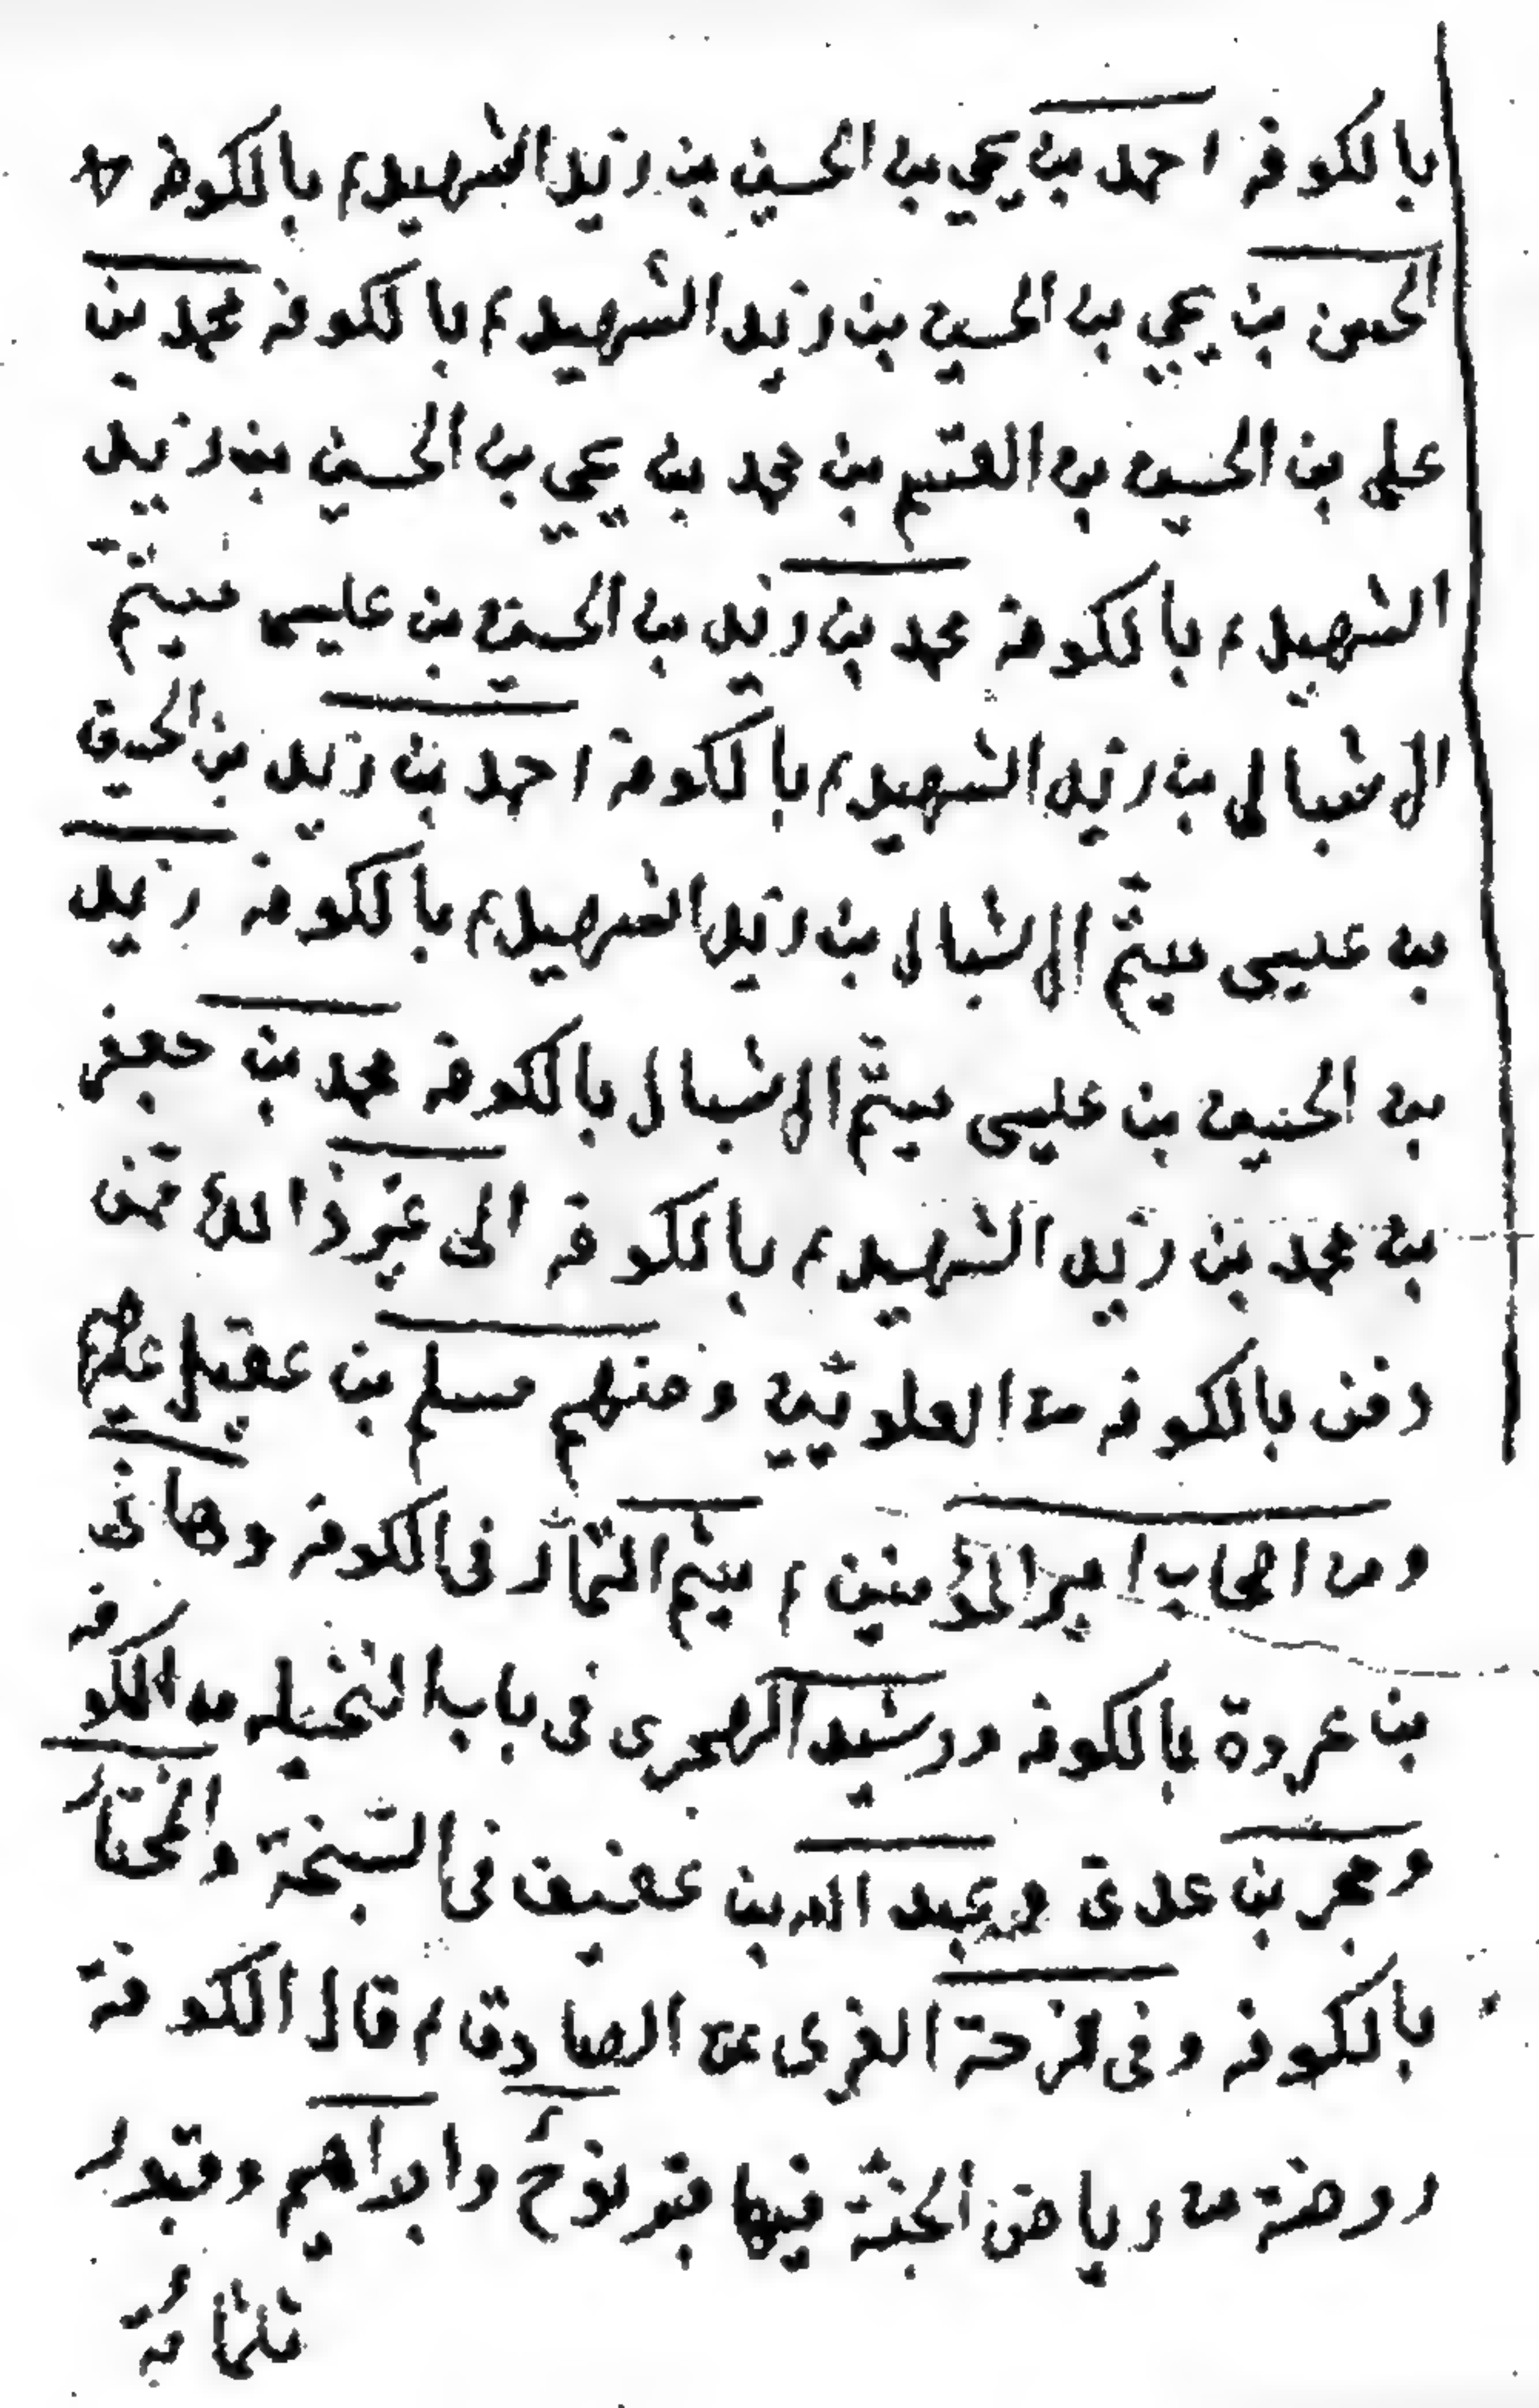 بالكوفة احمد بن يحيي بن الحسين بن زيد الشهيد م بالكوفة
الحسن بن يحيي بن الحسين بن زيد الشهيد م بالكوفة محمد بن
علي بن الحسين بن القسم بن محمد بن يحيي بن الحسين بن زيد
الشهيد م بالكوفة محمد بن زيد بن الحسين بن عليسى ميتم
الاشبال بن زيد الشهيد م بالكوفة احمد بن زيد بن الحسين
بن عيسى ميتّم الاشبال بن زيد الشهيد م بالكوفة زيد
بن الحسين بن عيسى ميتّم الاشبال بالكوفة محمد بن جعفر
بن محمد بن زيد الشهيد م بالكوفة الى غير ذالك ممّن
دفن بالكوفة من العلويّين ومنهم مسلم بن عقيل
ومن اصحاب امير المؤمنين م ميثم التمّار في الكوفة وهاني
بن عروة بالكوفة ورشيد الهجري في باب النخيله من الكوفة
وحجر بن عدي وعبد الله بن عفيف في السّبخة والمختار
بالكوفة وفي فرحة الغري عن الصادق م قال الكوفة
روضة من رياض الجنّة فيها قبر نوح وابراهيم وقبور
ثلثمائة